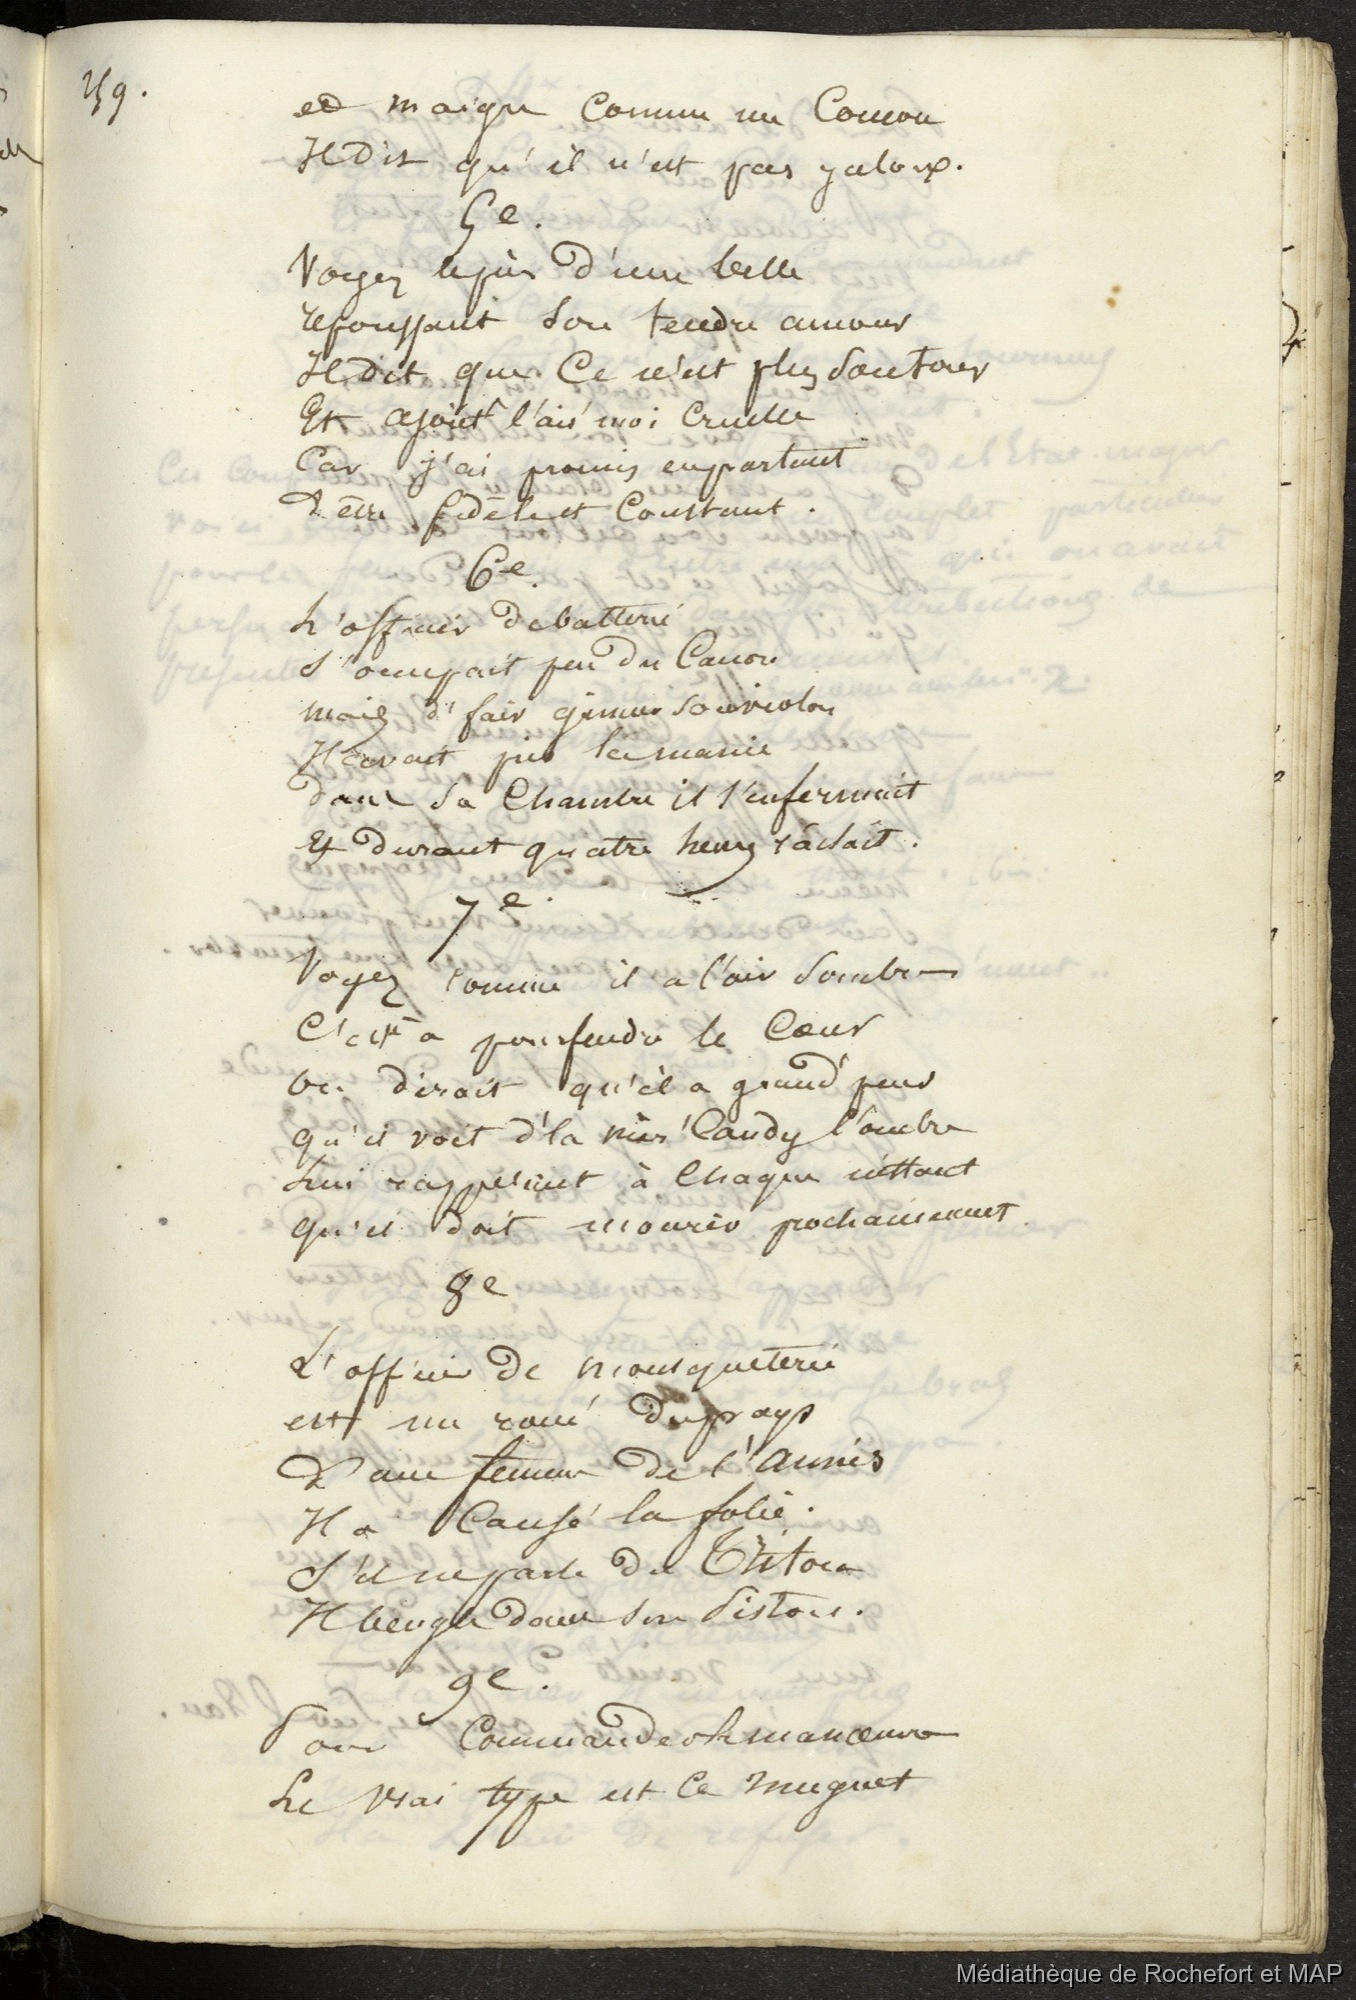 259.
et maigre comme un Coucou
Il dit qu'il n'est pas jaloux.
5e.
Voyez le près d'une belle
repoussant son tendre amour
Il dit que Ce n'est plus son tour
Et ajout' l'aiss' moi Cruelle
Car j'ai promis en partant
d'être fidèle et Constant.
6e.
L'officier de batterie
S'occupait peu du Canon
mais d' fair gémir son violon
Il avait pris la manie
dans sa Chambre il s'enfermait
Et durant quatre heures râclait.
7e.
Voyez comme il a l'air sombre
C'est a pourfendre le Cœur
on dirait qu'il a grand' peur
qu'il voit d' la mèr' Candy l'ombre
Lui rappelant à Chaque instant
qu'il doit mourir prochainement.
8e
L'officier de mousqueterie
est un roué du pays
D'une femme de l'Aunis
Il a Causé la folie.
S'il ne parle de
Il beugle dans son piston.
9e.
Pour Commander la manœuvre
Le vrai type est Ce muguet
Médiathèque de Rochefort et MAP